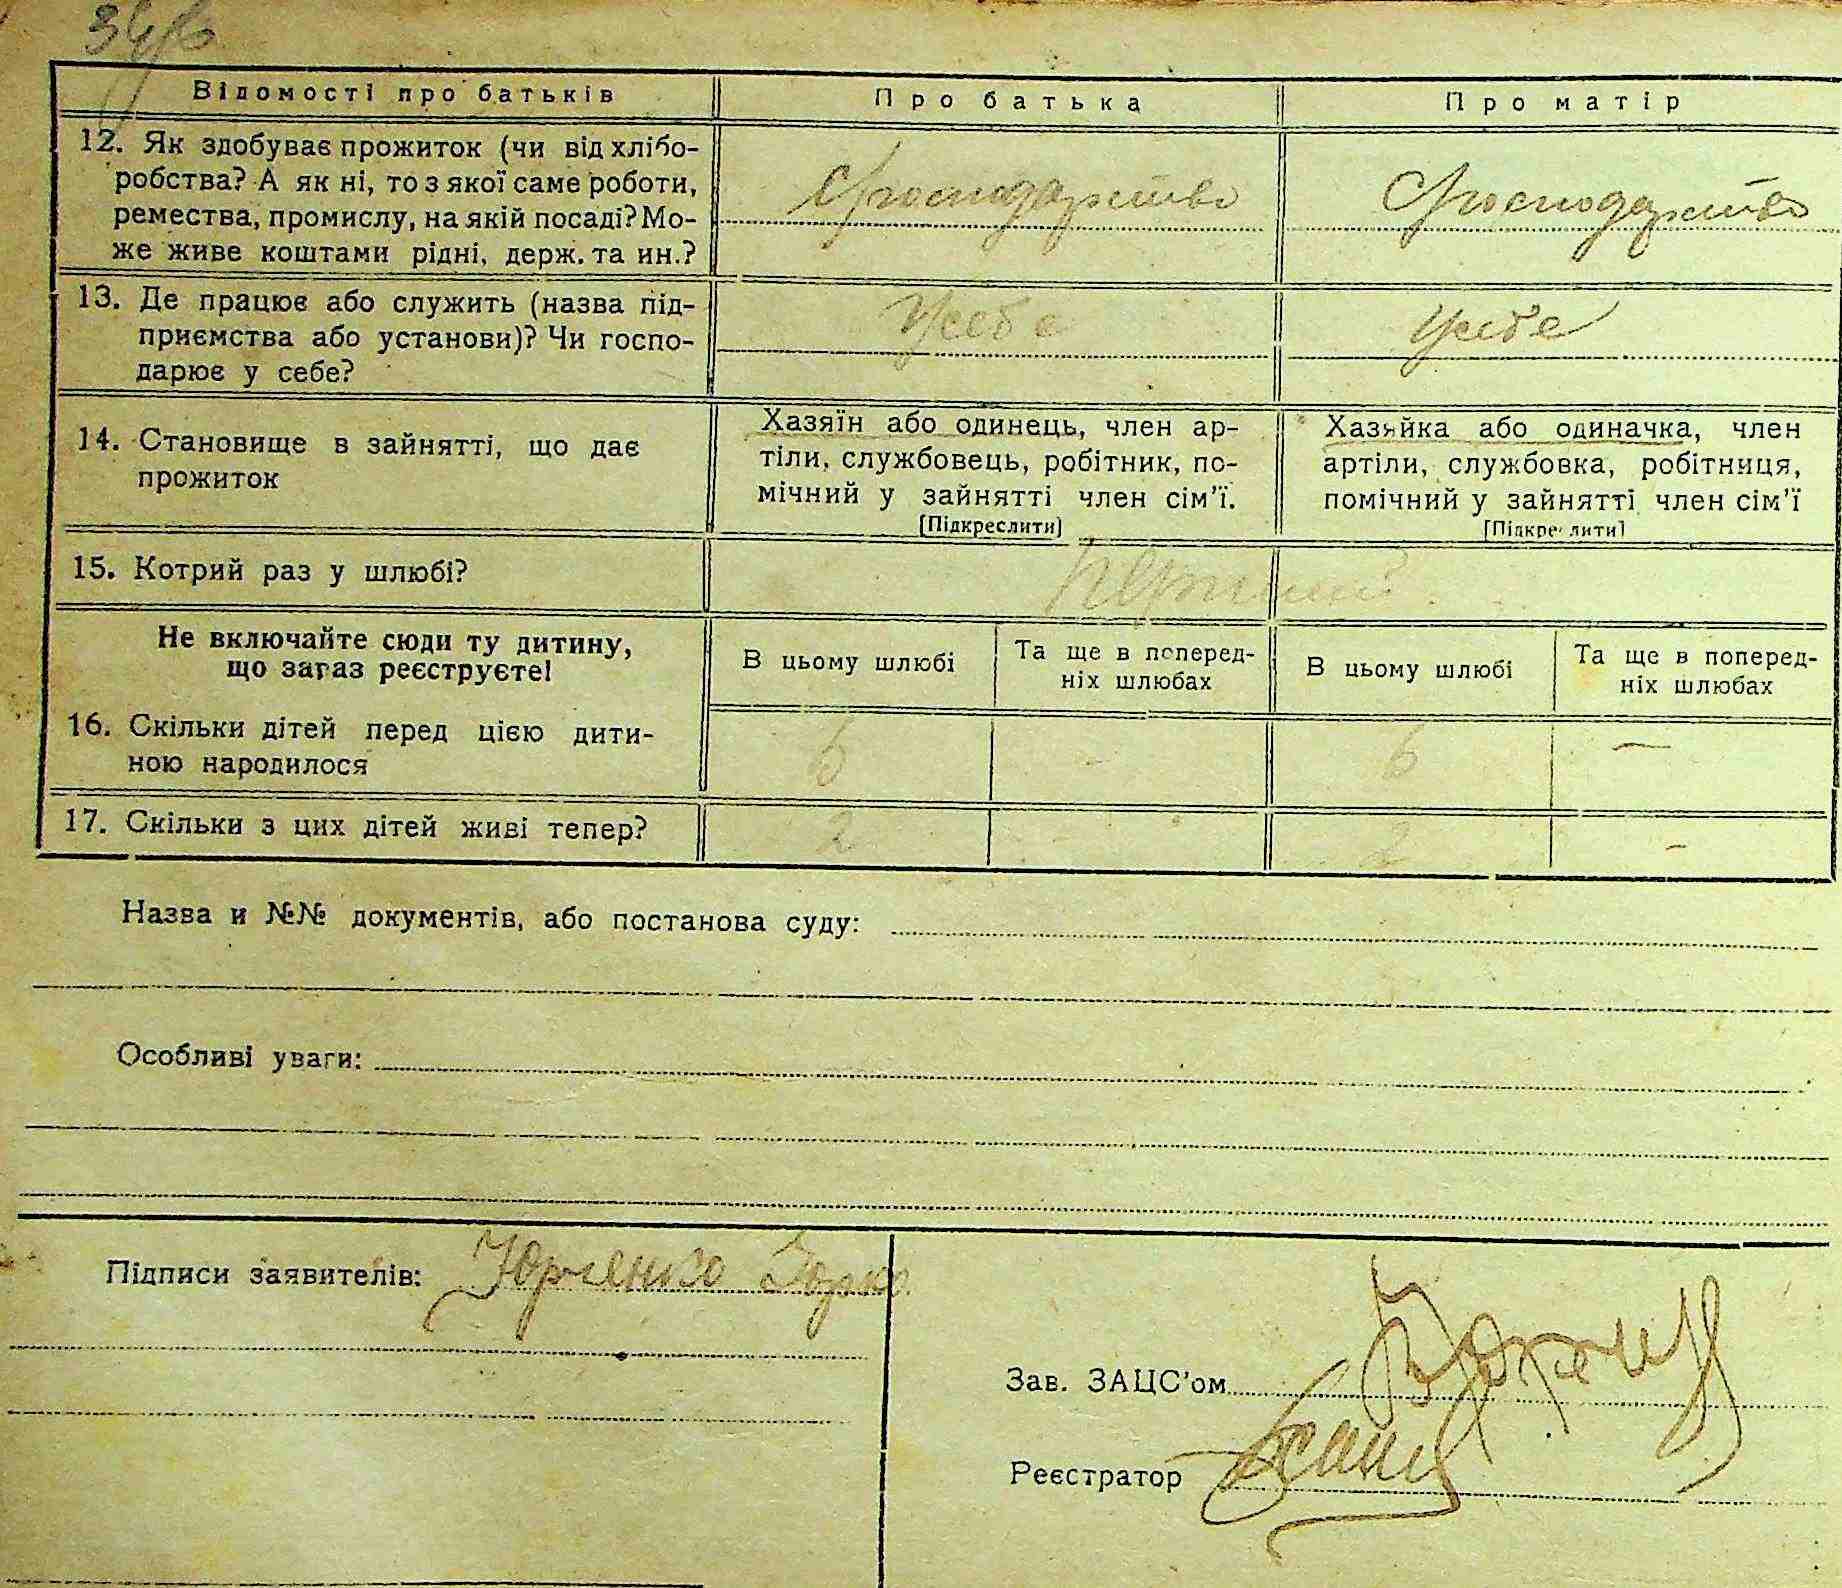 Відомості про батьків
Про батька
Про матір
12. Як здобуває прожиток (чи від хлібо-
робства? А як ні, то з якої саме роботи,
ремества, промислу, на якій посаді? Мо-
же живе коштами рідні, держ. та ин.?
13. Де працює або служить (назва під-
приємства або установи)? Чи госпо-
дарює у себе?
Усебе
Усебе
14. Становище в зайнятті, що дає
прожиток
Хазяїн або одинець, член ар-
тіли, службовець, робітник, по-
мічний у зайнятті член сім'ї.
[Підкреслити]
Хазяйка або одиначка, член
артіли, службовка, робітниця,
помічний у зайнятті член сім'ї
[Підкреслити]
15. Котрий раз у шлюбі?
Перший
Не включайте сюди ту дитину,
що зараз реєструєте!
В цьому шлюбі
Та ще в поперед-
ніх шлюбах
В цьому шлюбі
Та ще в поперед-
ніх шлюбах
16. Скільки дітей перед цією дити-
ною народилося
6 - 6 —
17. Скільки з цих дітей живі тепер?
2 - 2 -
Назва и №№ документів, або постанова суду:
Особливі уваги:
Підписи заявителів: Юрченко Юрко
Зав. ЗАЦС'ом
Реєстратор